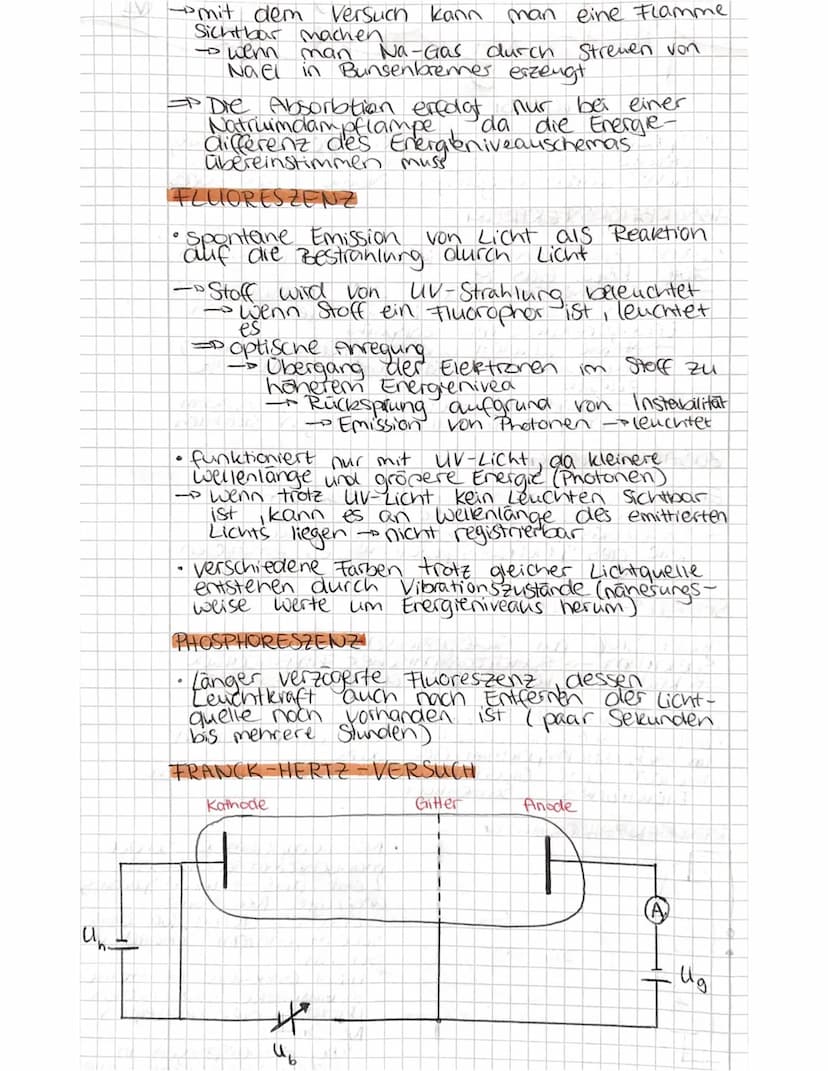 → mit dem Versuch kann man eine Flamme
sichtbar machen
→ wenn man Na-Gas durch Streuen von
NaCl in Bunsenbrenner erzeugt
⇒ Die Absorbtion erfolgt nur bei einer
Natriumdampflampe, da die Energie-
differenz des Energieniveauschemas
übereinstimmen muss
FLUORESZENZ
• spontane Emission von Licht als Reaktion
auf die Bestrahlung durch Licht
→ Stoff wird von UV-Strahlung beleuchtet
→ wenn Stoff ein Fluorophor ist, leuchtet
es
⇒ optische Anregung
→ Übergang der Elektronen im Stoff zu
höherem Energienivea
→ Rücksprung aufgrund von Instabilität
→ Emission von Photonen → leuchtet
• funktioniert nur mit UV-Licht, da kleinere
Wellenlänge und größere Energie (Photonen)
→ wenn trotz UV-Licht kein Leuchten sichtbar
ist, kann es an Wellenlänge des emittierten
Lichts liegen → nicht registrierbar
• verschiedene Farben trotz gleicher Lichtquelle
entstehen durch Vibrationszustände (näherungs-
weise Werte um Energieniveaus herum)
PHOSPHORESZENZ
• Länger verzögerte Fluoreszenz, dessen
Leuchtkraft auch nach Entfernen der Licht-
quelle noch vorhanden ist (paar Sekunden
bis mehrere Stunden)
FRANCK-HERTZ-VERSUCH
Kathode Gitter Anode
A
Uh
Ug
Ub